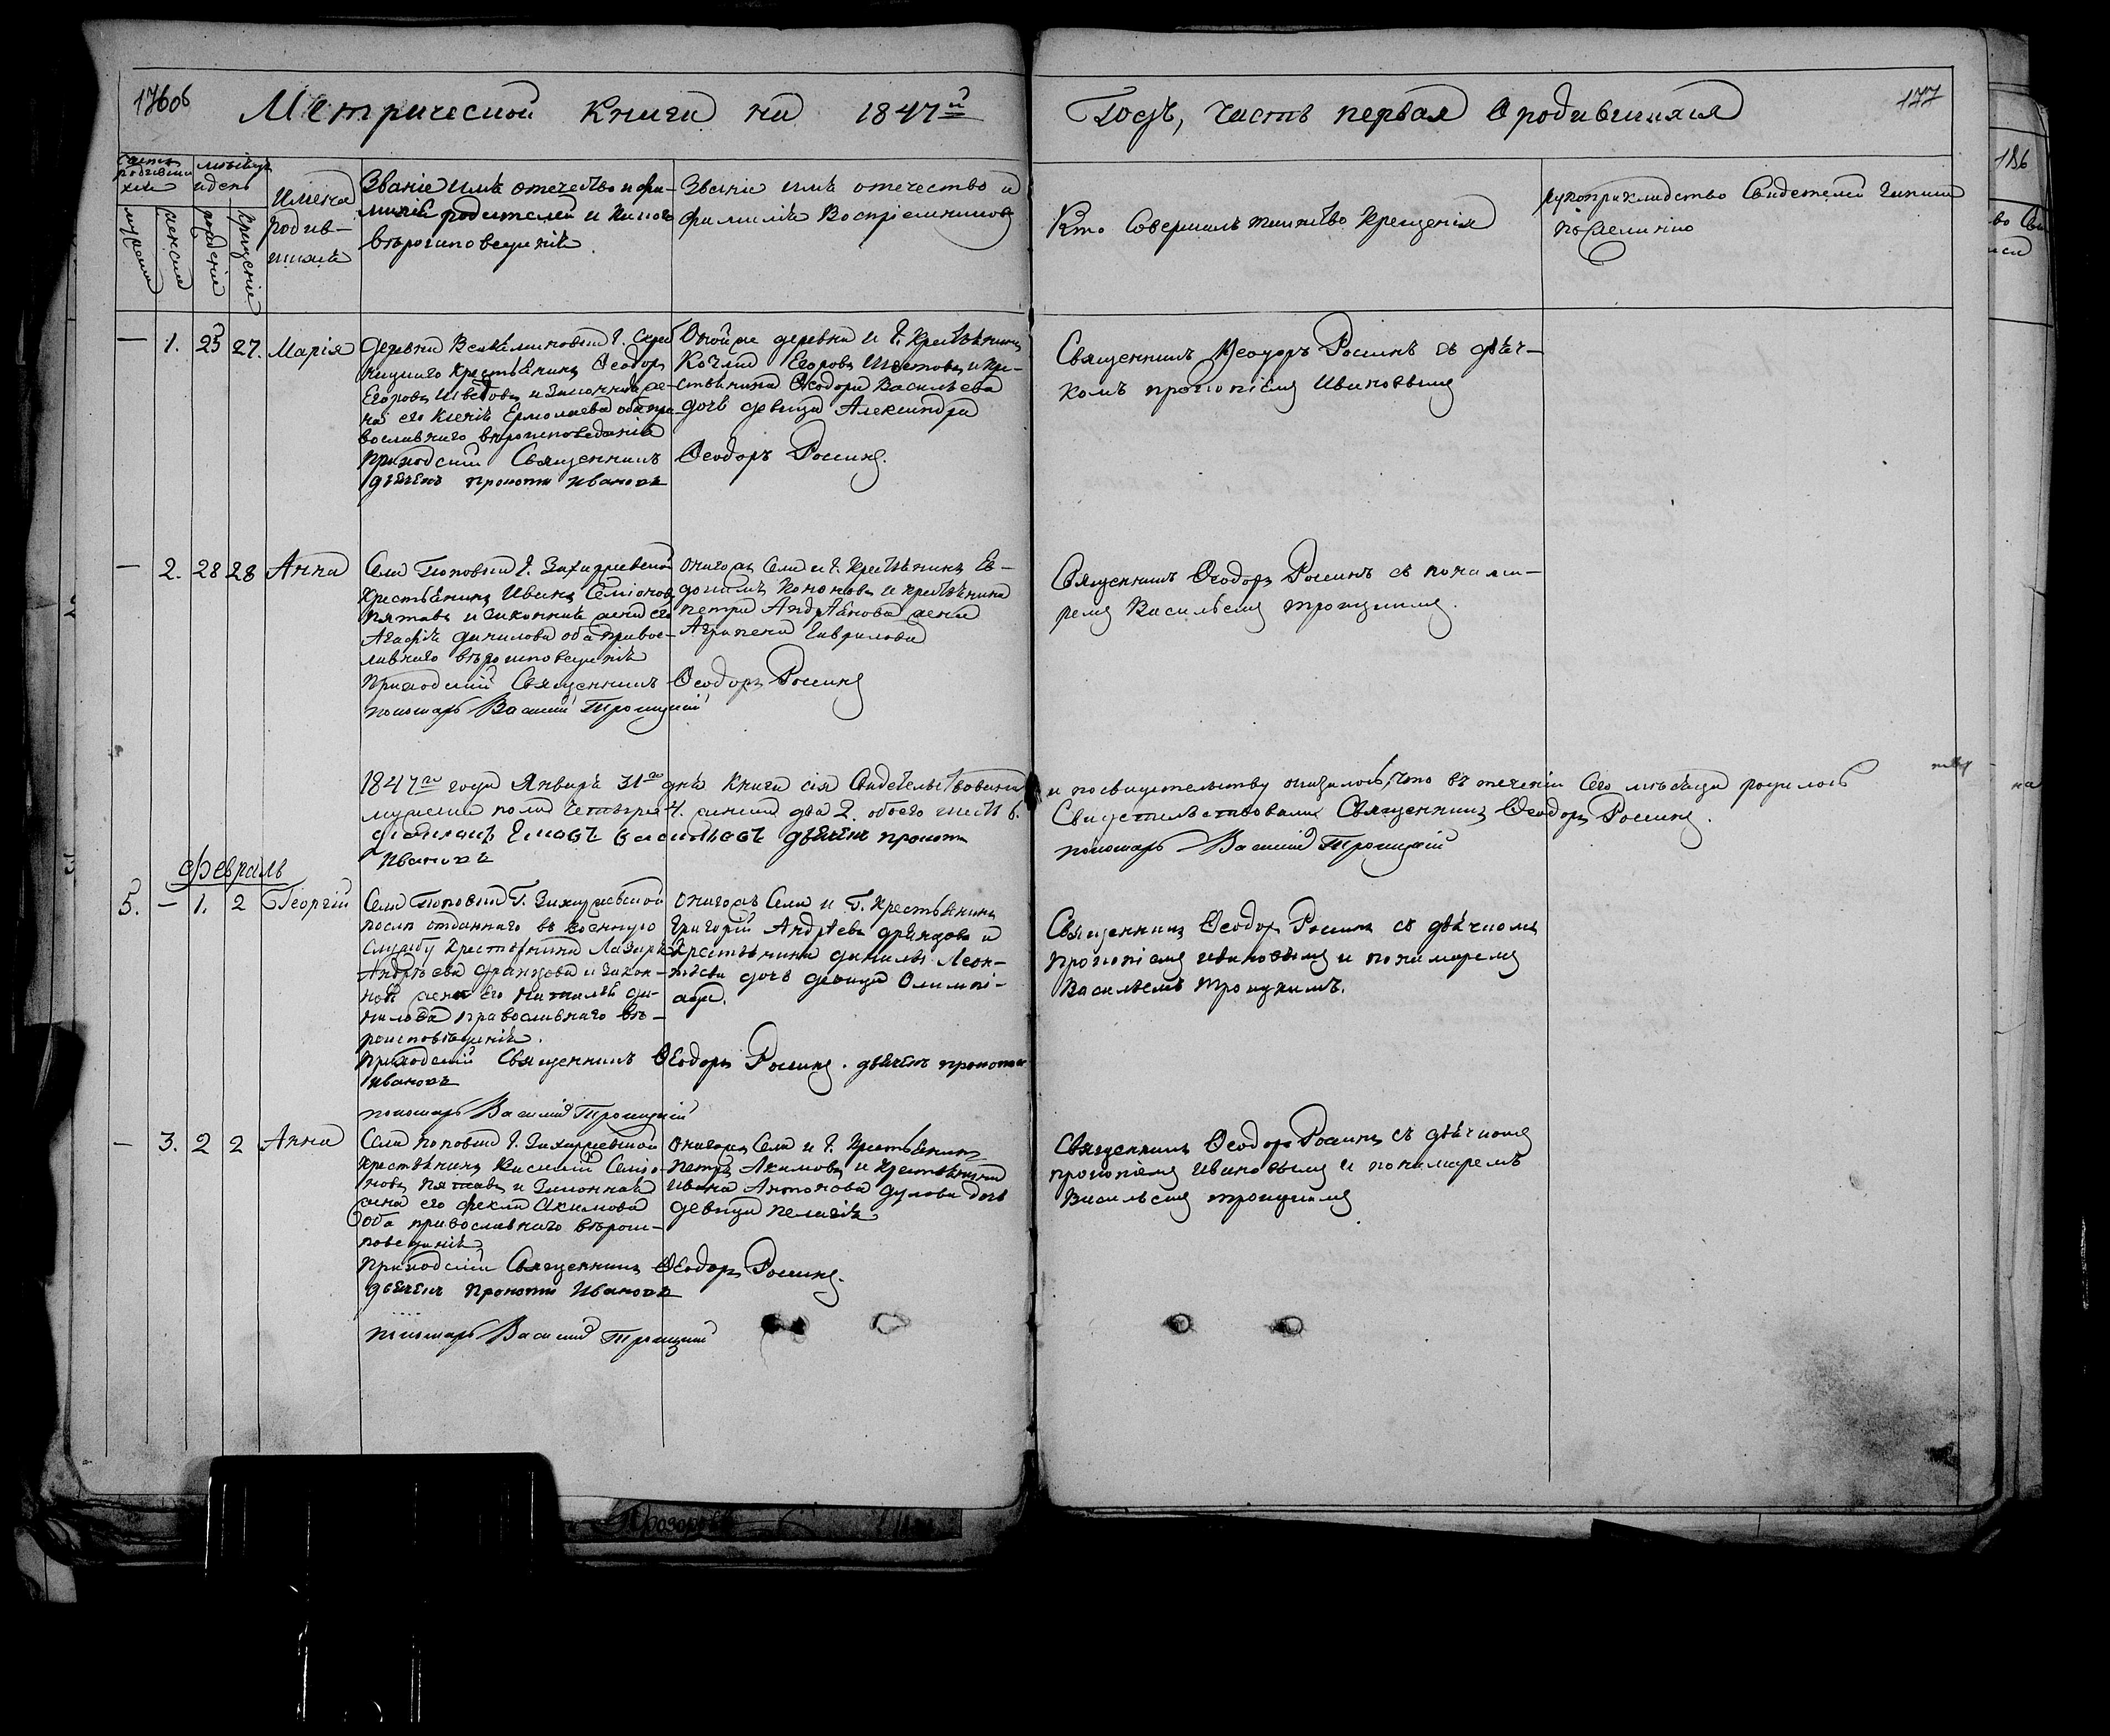 176об
Метрической Книги на 1847й
Годъ, часть первая О родившихся
177
186
Счетъ родившихся
мѣсяцъ и день
Имена родив-
шихся
мужеска
женска
рожденія
крещенія
Званіе имя отечество и фа-
милія родителей и какого
вѣроисповеданія
Званіе имя отечество и
фамилія Воспріемниковъ
Кто Совершалъ таинство Крещенія
рукоприкладство Свидетелей записи
по желанію
— 1. 25 27. Марія
Деревни
крестьянинъ Ѳеодоръ
Егоровъ и законная же-
на его Ермолаева оба пра-
вославнаго вѣроисповеданія
Приходскій Священникъ Ѳеодоръ Росинъ.
дьячекъ прокопи Ивановъ
Оной же деревни и Г. Крестьянинъ
Егоровъ и кре-
стьянина Ѳеодора Васильева
дочь девица Александра
Священникъ Ѳеодоръ Росинъ съ дьяч-
комъ прокопіемъ Ивановымъ
— 2. 28 28 Анна
Села Поповки Г. Захаржевской
Крестьянинъ Иванъ Семіоновъ
Пятавъ и законная жена его
Агафія данилова оба правос-
лавнаго вѣроисповеданія
Приходскій Священникъ Ѳеодоръ Росинъ
пономарь Василій Троицкій
Онагожъ Села и Г. Крестьянинъ Ев-
докимъ Кононовъ и крестьянина
петра Андреянова жена
Агрипена Гаврилова
Священникъ Ѳеодоръ Росинъ съ понома-
ремъ Васильемъ троицкимъ.
1847го года Января 31го дня Книга сія Свидетельствована
и по свидетельству оказалось, что въ течении Сего мѣсяца родилось
мужеска пола четыри 4. женска два 2. обоего шесть 6.
Свидетельствовали Священникъ Ѳеодоръ Росинъ.
дьячекъ прокопи
Ивановъ
пономарь Василій Троицкій
Февраль
5. — 1. 2 Георгій
Села Поповки Г. Захаржевской
после отданнаго въ военную
службу крестьянина Лазаря
Андрѣева и закон-
ной жены его Наталіи да-
нилова православнаго вѣ-
роисповеданія.
Приходскій Священникъ Ѳеодоръ Росинъ. дьячекъ прокопи
Ивановъ
пономарь Василій Троицкій
Онагожъ Села и Г. Крестьянинъ
Григорій Андрѣевъ и
Крестьянина данилы Леон-
тьева дочь девица Олимпі-
ада.
Священникъ Ѳеодоръ Росинъ съ дьячкомъ
прокопіемъ ивановымъ и пономаремъ
Васильемъ троицкимъ.
— 3. 2 2 Анна
Села поповки Г. Захаржевской
Крестьянинъ Василій Семіо-
новъ Пятавъ и Законная
жена его Фекла Акимова
Оба православнаго вѣрои-
поведанія
Приходскій Священникъ Ѳеодоръ Росинъ.
дьячекъ прокопи Ивановъ
пономарь Василій Троицкій
Онагожъ Села и Г. Крестьянинъ
Петръ Акимовъ и Крестьянина
Ивана Антонова дулова дочь
девица пелагія
Священникъ Ѳеодоръ Росинъ съ дьячкомъ
прокопіемъ Ивановымъ и пономаремъ
Васильемъ троицкимъ